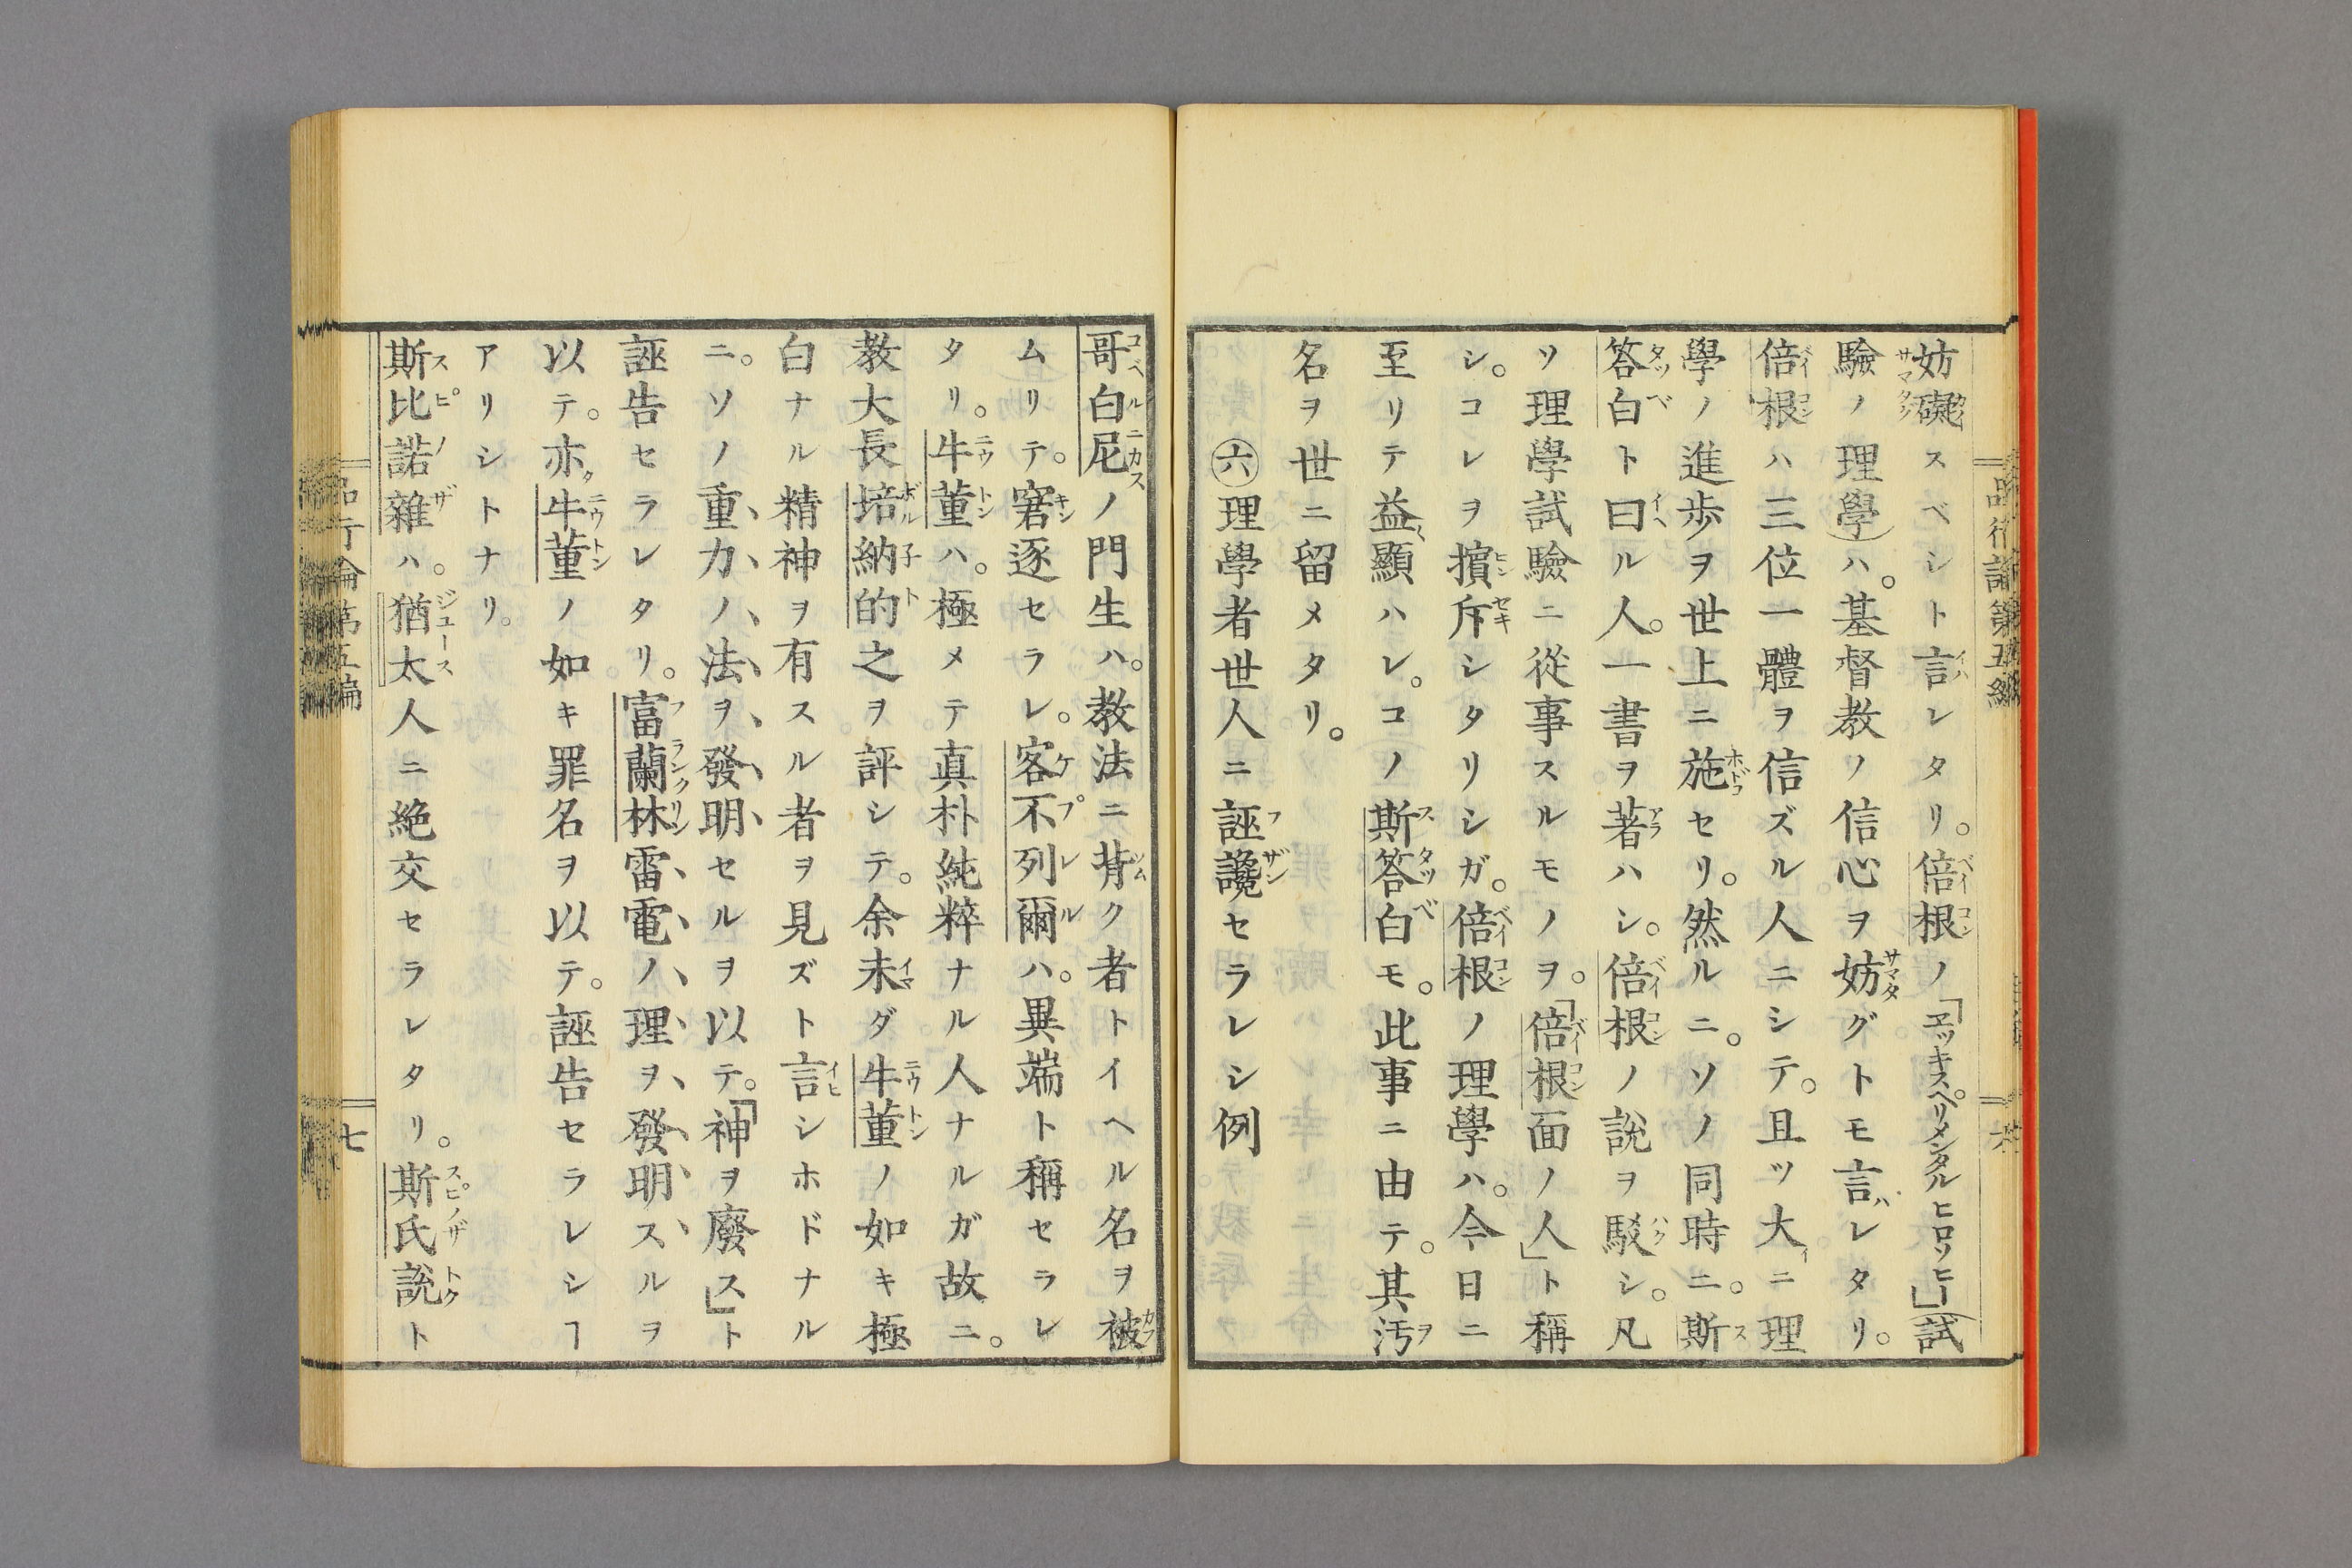 品行論第五編
六
妨礙スベシト言レタリ。倍根ノ「ヱッキスペリメンタルヒロソヒー」(試
驗ノ理學)ハ。基督教ノ信心ヲ妨グトモ言レタリ。
倍根ハ三位一體ヲ信ズル人ニシテ。且ツ大ニ理
學ノ進歩ヲ世上ニ施セリ。然ルニ。ソノ同時ニ。斯
答白ト曰ル人。一書ヲ著ハシ。倍根ノ說ヲ駁シ。凡
ソ理學試驗ニ從事スルモノヲ。「倍根面ノ人」ト稱
シ。コレヲ擯斥シタリシガ。倍根ノ理學ハ。今日ニ
至リテ益顯ハレ。コノ斯答白モ。此事ニ由テ。其汚
名ヲ世ニ留メタリ。
㊅理學者世人ニ誣讒セラレシ例
哥白尼ノ門生ハ。教法ニ背ク者トイヘル名ヲ被
ムリテ。窘逐セラレ。客不列爾ハ。異端ト稱セラレ
タリ。牛董ハ。極メテ真朴純粹ナル人ナルガ故ニ。
教大長培納的之ヲ評シテ。余未ダ牛董ノ如キ極
白ナル精神ヲ有スル者ヲ見ズト言シホドナル
ニ。ソノ重力ノ法ヲ發明セルヲ以テ。「神ヲ廢ス」ト
誣告セラレタリ。富蘭林雷電ノ理ヲ發明スルヲ
以テ。亦牛董ノ如キ罪名ヲ以テ。誣告セラレシヿ
アリシトナリ。
斯比諾雜ハ。猶太人ニ絶交セラレタリ。斯氏說ト
品行論第五編
七